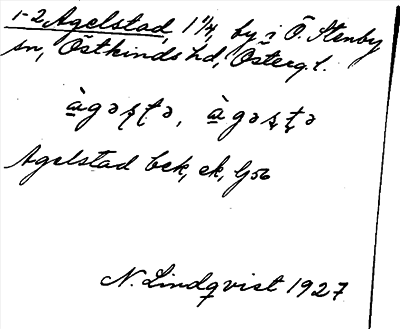 1-2 Agelstad, 1 1/4, by i Ö. Stenby
sn, Östkinds hd, Österg. l.
àgəʂʈə, àgəʂʈə
Agelstad bek, ek, G56
N. Lindqvist 1927